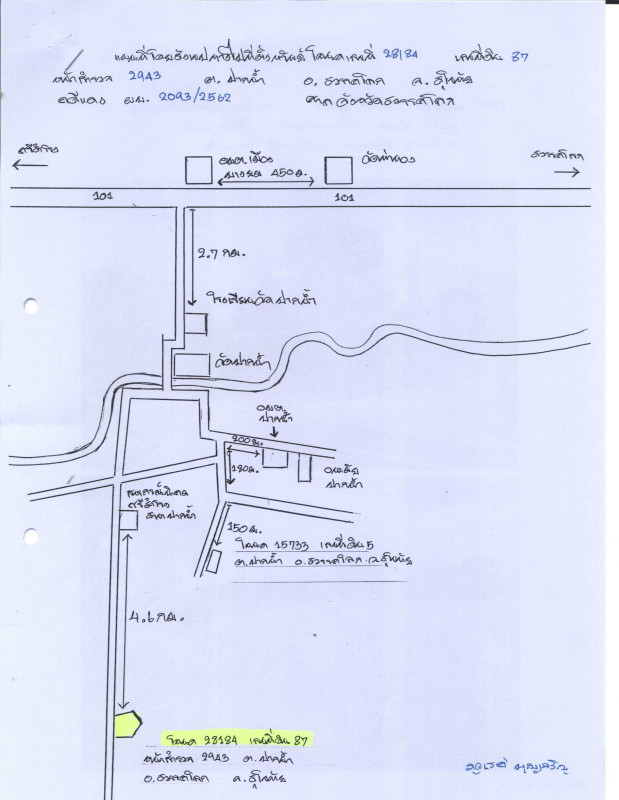 แผนที่โดยสังเขปการไปที่ตั้งทรัพย์ โฉนดเลขที่ 28184 เลขที่ดิน 87
หน้าสำรวจ 2943 ต. ปากน้ำ อ. สวรรคโลก จ. สุโขทัย
คดีแดง ผบ. 2093/2562 ศาลจังหวัดสวรรคโลก
สวรรคโลก
อบต. เมือง
บางขลัง 450 ม.
101
101
2.7 กม.
โรงเรียนวัดปากน้ำ
วัดปากน้ำ
อบต.
ปากน้ำ
200 ม.
180 ม.
อนามัย
ปากน้ำ
ปากน้ำ
150 ม.
โฉนด 15733 เลขที่ดิน 5
ต. ปากน้ำ อ. สวรรคโลก จ. สุโขทัย
4.6 กม.
โฉนด 28184 เลขที่ดิน 87
หน้าสำรวจ 2943 ต. ปากน้ำ
อ. สวรรคโลก จ. สุโขทัย